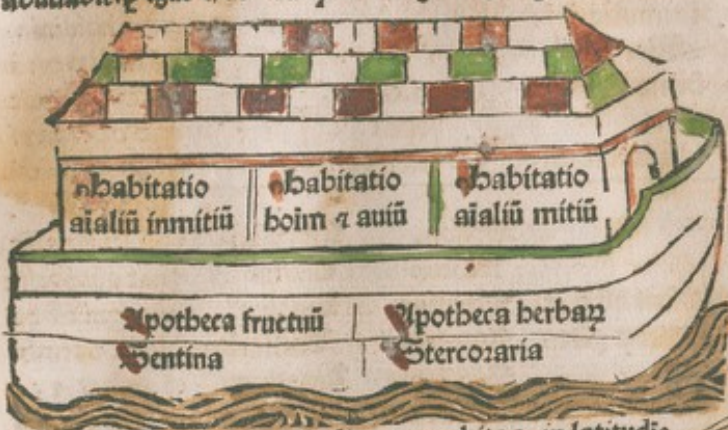 Habitatio
aīaliū inmitiū
Habitatio
hoīm ⁊ auiū
Habitatio
aīaliū mitiū
Apotheca fructuū
Apotheca herbaꝝ
Sentina
Stercoꝛaria
latitudīe